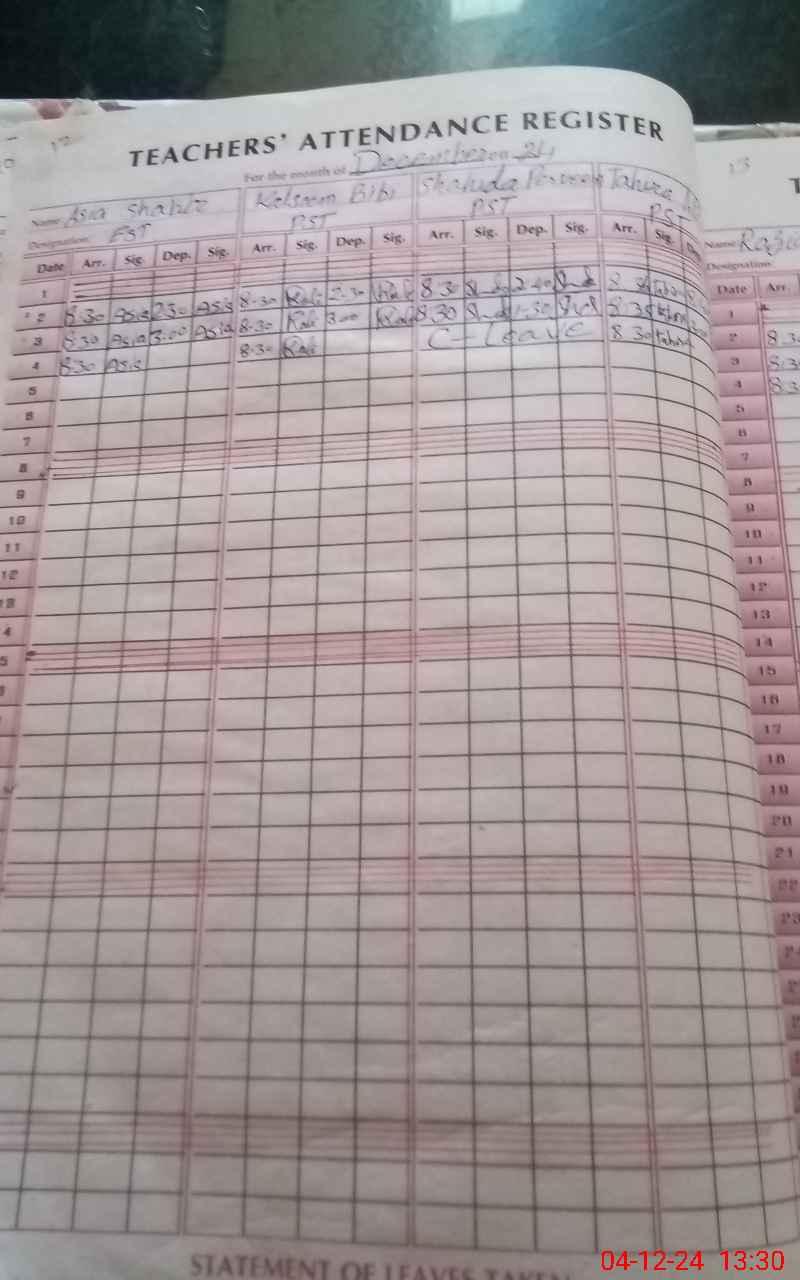 12
TEACHERS' ATTENDANCE REGISTER
For the month of December on 24
Name Asia Shahte Kalsoom Bibi Shahida Perveen Tahira
Designation EST PST PST PST
Date Arr. Sig. Dep. Sig. Arr. Sig. Dep. Sig. Arr. Sig. Dep. Sig. Arr. Sig. Dep
1
2 8:30 Asia 2:30 Asia 8:30 2:30 8 30 2:40 8 30
3 8:30 Asia 3:00 Asia 8:30 3:00 8 30 1:30 8:30
4 8:30 Asia 8:30 C-Leave 8 30
5
6
7
8
9
10
11
12
13
4
5
STATEMENT OF LEAVES TAKEN
13
T
Name Razia
Designation
Date Arr.
1
2 8:3
3 8:3
4 8:3
5
6
7
8
9
10
11
12
13
14
15
16
17
18
19
20
21
22
23
04-12-24 13:30